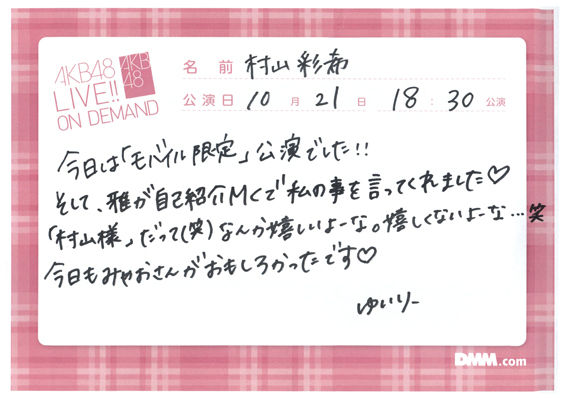 AKB48
LIVE!!
ON DEMAND
AKB
48
名 前 村山彩希
公演日 10 月 21 日 18:30 公演
今日は「モバイル限定」公演でした!!
そして、雅が自己紹介MCで私の事を言ってくれました♡
「村山様」だって(笑)なんか嬉しいよーな。嬉しくないよーな…笑
今日もみゃおさんがおもしろかったです♡
ゆいりー
DMM.com